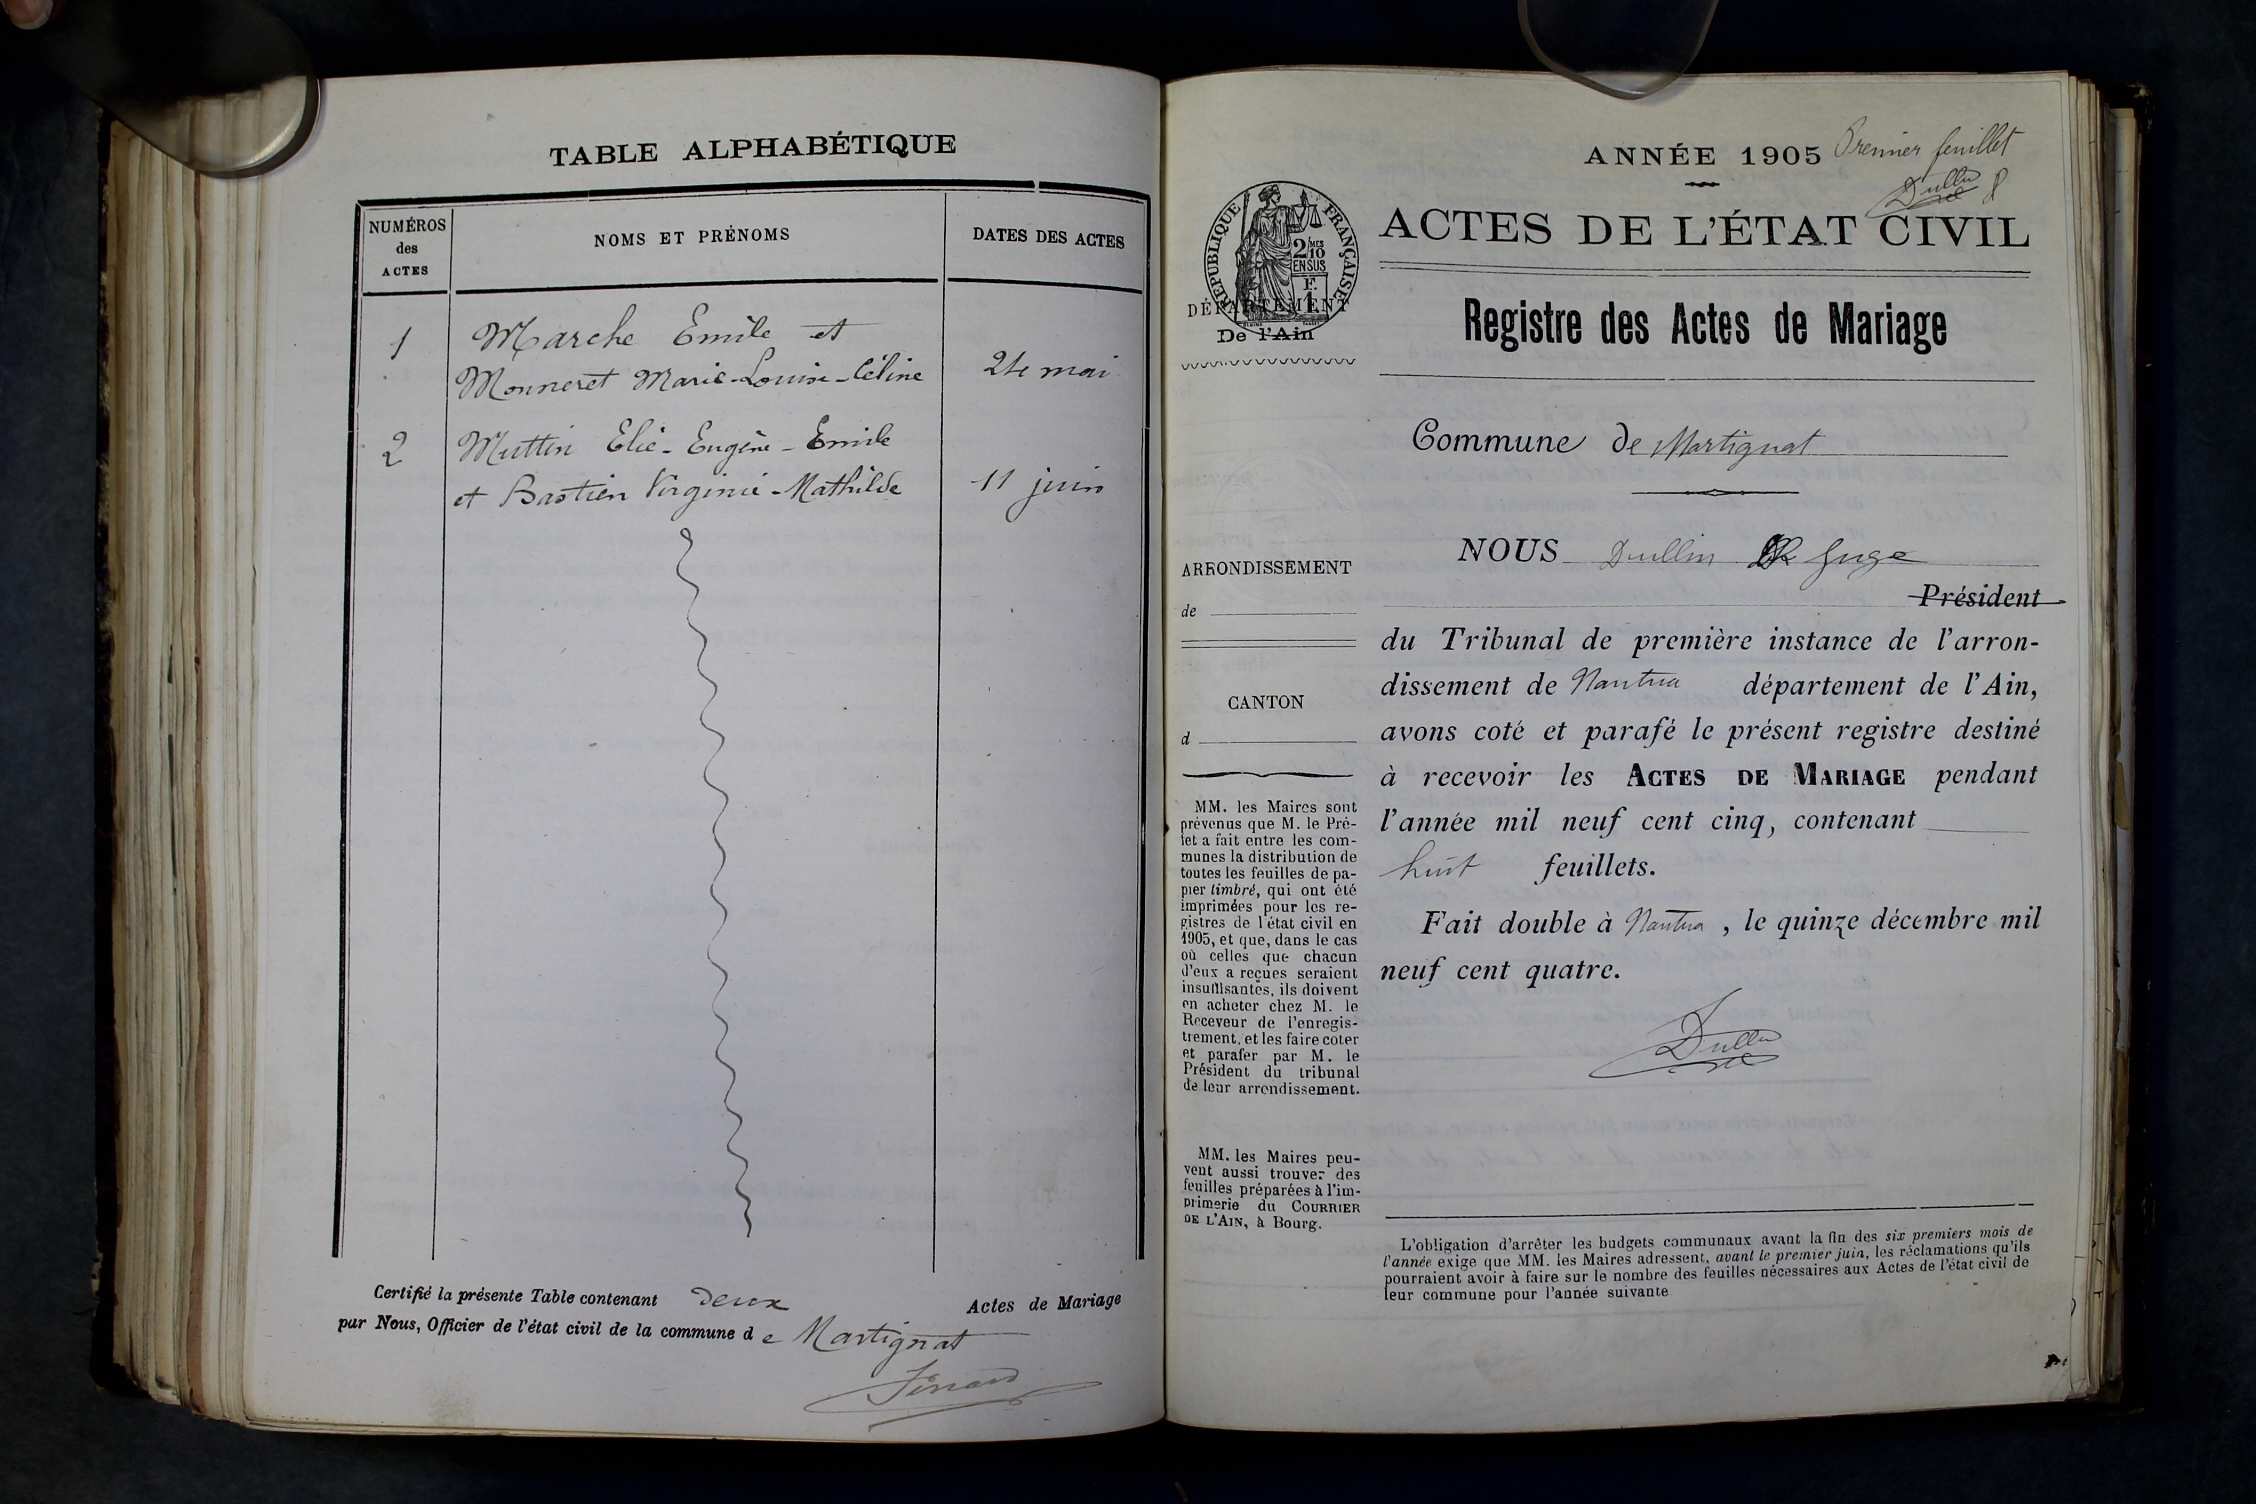 TABLE ALPHABÉTIQUE
NUMÉROS
des
ACTES
NOMS ET PRÉNOMS
DATES DES ACTES
1
Marche Emile et
Monneret Marie-Louise-Céline
24 mai
2
Muttin Elie-Eugène-Emile
et Bastien Virginie-Mathilde
11 juin
Certifié la présente Table contenant deux Actes de Mariage
par Nous, Officier de l'état civil de la commune de Martignat
ANNÉE 1905
Premier feuillet
ACTES DE L'ÉTAT CIVIL
RÉPUBLIQUE FRANÇAISE
2/10 MES
EN SUS
F.
1
DÉPARTEMENT
De l'Ain
Registre des Actes de Mariage
Commune de Martignat
ARRONDISSEMENT
de
CANTON
d
MM. les Maires sont
prévenus que M. le Pré-
fet a fait entre les com-
munes la distribution de
toutes les feuilles de pa-
pier timbré, qui ont été
imprimées pour les re-
gistres de l'état civil en
1905, et que, dans le cas
où celles que chacun
d'eux a reçues seraient
insuffisantes, ils doivent
en acheter chez M. le
Receveur de l'enregis-
trement, et les faire coter
et parafer par M. le
Président du tribunal
de leur arrondissement.
MM. les Maires peu-
vent aussi trouver des
feuilles préparées à l'im-
primerie du COURRIER
DE L'AIN, à Bourg.
NOUS Dullin Juge
Président
du Tribunal de première instance de l'arron-
dissement de Nantua département de l'Ain,
avons coté et parafé le présent registre destiné
à recevoir les ACTES DE MARIAGE pendant
l'année mil neuf cent cinq, contenant
huit feuillets.
Fait double à Nantua, le quinze décembre mil
neuf cent quatre.
Dullin
L'obligation d'arrêter les budgets communaux avant la fin des six premiers mois de
l'année exige que MM. les Maires adressent, avant le premier juin, les réclamations qu'ils
pourraient avoir à faire sur le nombre des feuilles nécessaires aux Actes de l'état civil de
leur commune pour l'année suivante